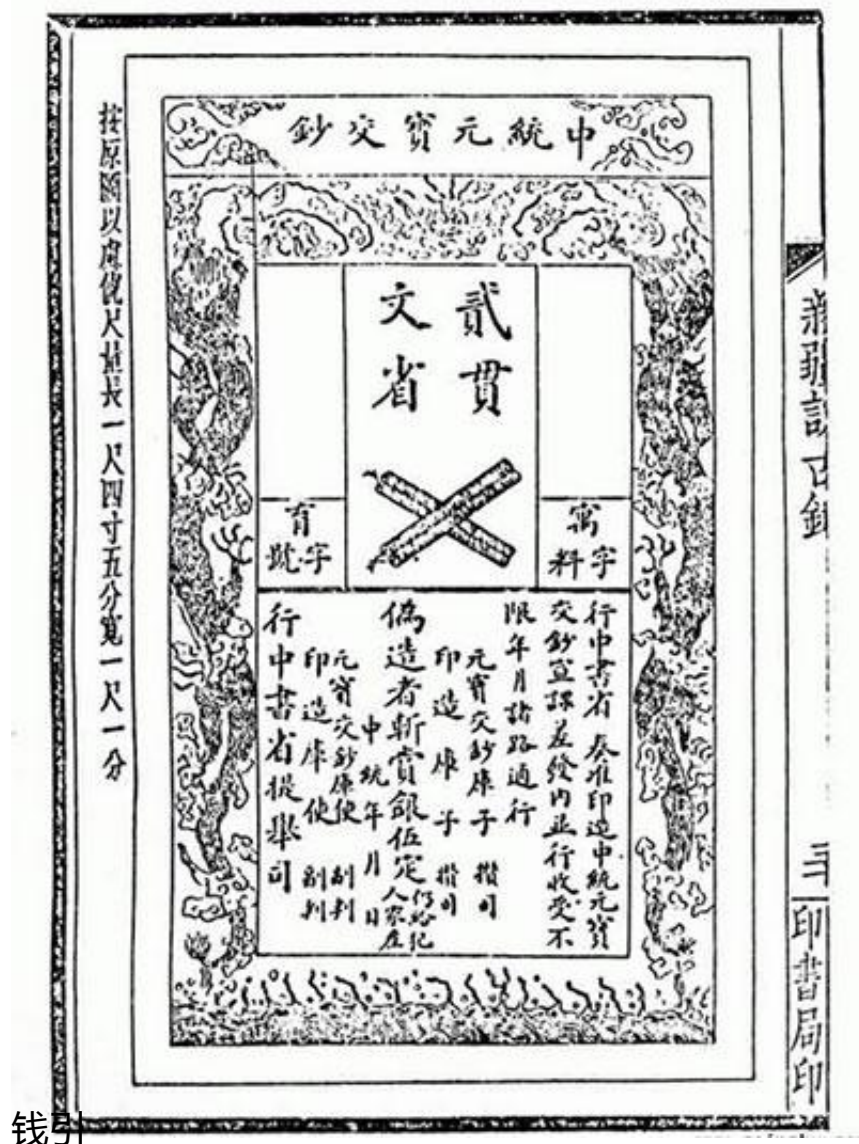 中統元寳交鈔
貳貫
文省
字料
字號
行中書省奏准印造中統元寳
交鈔宣課差發內並行收受不
限年月諸路通行
元寳交鈔庫子 攢司
印造庫子 攢司
偽造者斬賞銀伍定仍給犯
人家產
中統年月日
元寳交鈔庫使 副判
印造庫使 副判
行中書省提舉司
按原圖以虎俴尺量長一尺四寸五分寬一尺一分
印書局印
钱引